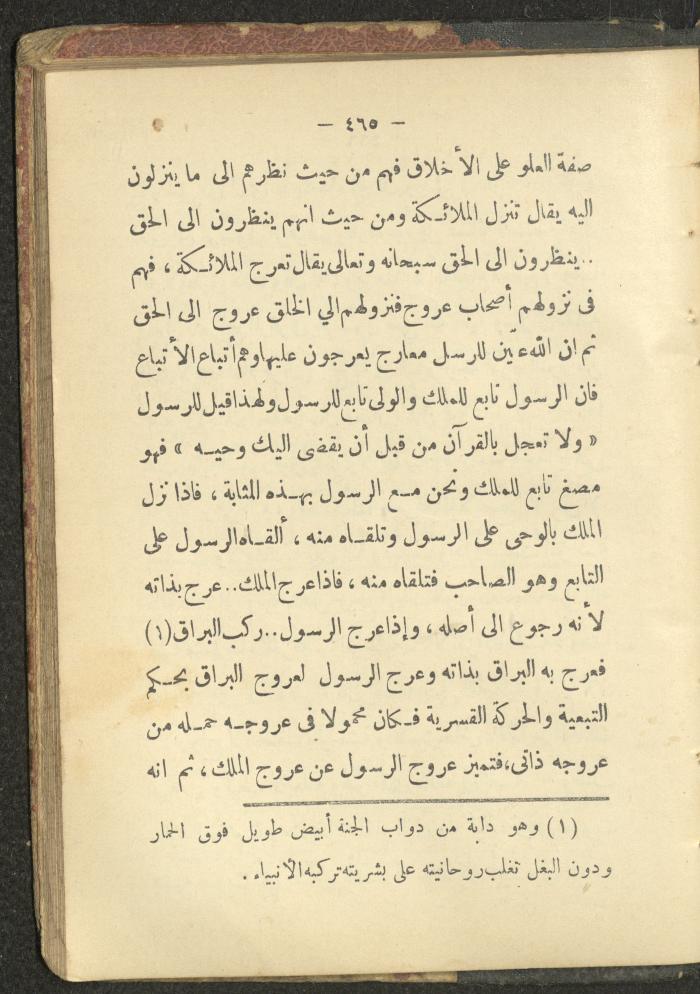 — ٤٦٥ —
صفة العلو على الأخلاق فهم من حيث نظرهم الى ما ينزلون
اليه يقال تنزل الملائكة ومن حيث انهم ينظرون الى الحق
..ينظرون الى الحق سبحانه وتعالى يقال تعرج الملائكة ، فهم
فى نزولهم أصحاب عروج فنزولهم الي الخلق عروج الى الحق
ثم ان الله عيّن للرسل معارج يعرجون عليها وهم أتباع الأتباع
فان الرسول تابع للملك والولى تابع للرسول ولهذا قيل للرسول
« ولا تعجل بالقرآن من قبل أن يقضى اليك وحيه » فهو
مصغ تابع للملك ونحن مع الرسول بهذه المثابة ، فاذا نزل
الملك بالوحى على الرسول وتلقاه منه ، ألقاه الرسول على
التابع وهو الصاحب فتلقاه منه ، فاذا عرج الملك.. عرج بذاته
لأنه رجوع الى أصله ، وإذا عرج الرسول.. ركب البراق (١)
فعرج به البراق بذاته وعرج الرسول لعروج البراق بحكم
التبعية والحركة القسرية فكان محمولا فى عروجه حمله من
عروجه ذاتى، فتميز عروج الرسول عن عروج الملك ، ثم انه
(١) وهو دابة من دواب الجنة أبيض طويل فوق الحمار
ودون البغل تغلب روحانيته على بشريته تركبه الأنبياء .